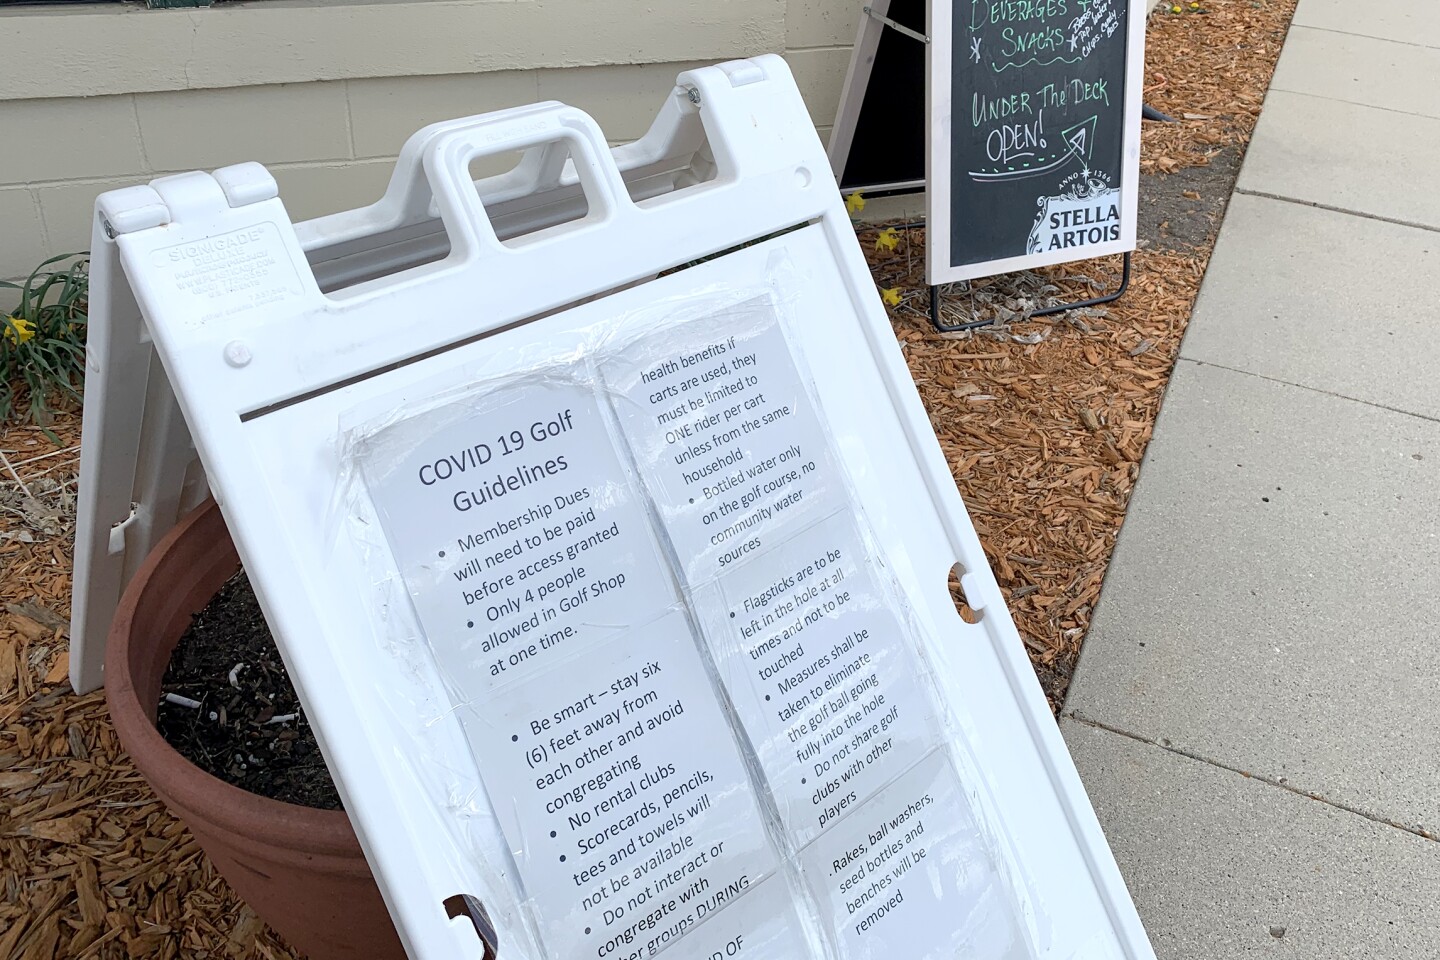 BEVERAGES +
SNACKS
UNDER The DECK
OPEN!
ANNO 1366
STELLA
ARTOIS
SIGNICADE
DELUXE
COVID 19 Golf
Guidelines
• Membership Dues
will need to be paid
before access granted
• Only 4 people
allowed in Golf Shop
at one time.
• Be smart – stay six
(6) feet away from
each other and avoid
congregating
• No rental clubs
• Scorecards, pencils,
tees and towels will
not be available
• Do not interact or
congregate with
her groups DURING
ND OF
health benefits if
carts are used, they
must be limited to
ONE rider per cart
unless from the same
household
• Bottled water only
on the golf course, no
community water
sources
• Flagsticks are to be
left in the hole at all
times and not to be
touched
• Measures shall be
taken to eliminate
the golf ball going
fully into the hole
• Do not share golf
clubs with other
players
. Rakes, ball washers,
seed bottles and
benches will be
removed